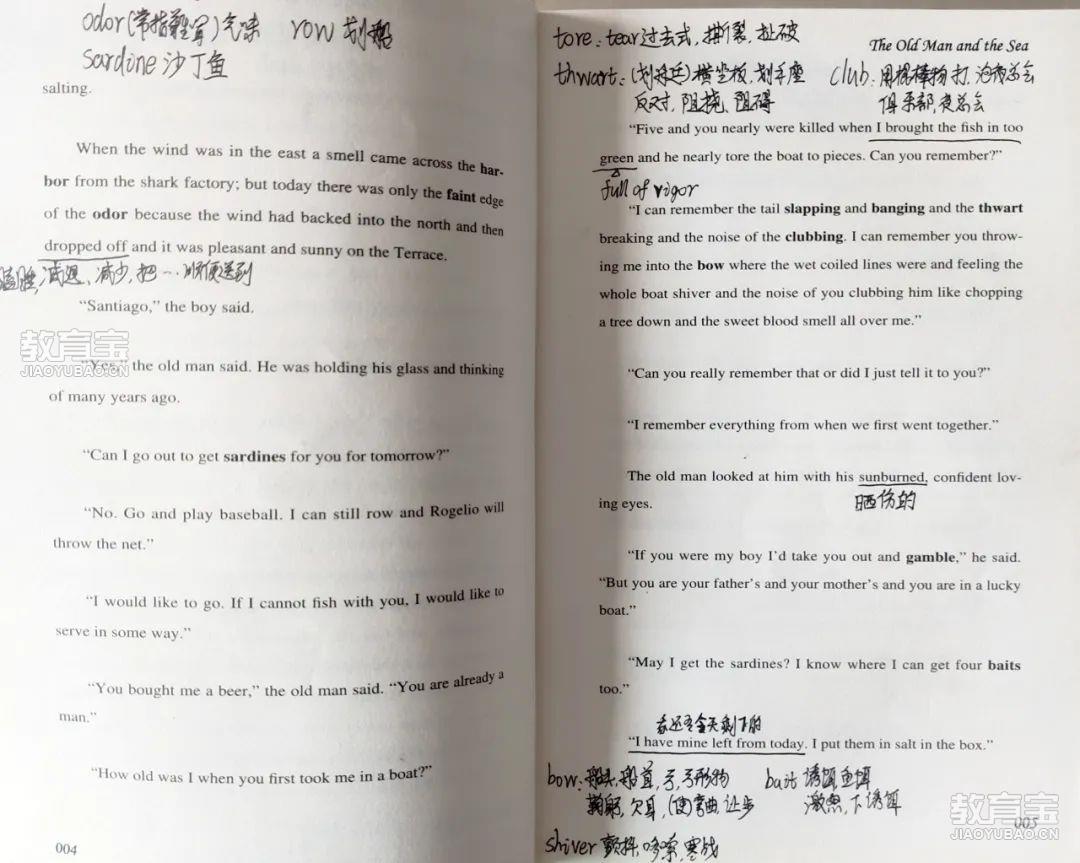 odor(常指难闻)气味 row 划船
sardine 沙丁鱼
salting.
When the wind was in the east a smell came across the har-
bor from the shark factory; but today there was only the faint edge
of the odor because the wind had backed into the north and then
dropped off and it was pleasant and sunny on the Terrace.
减退、减少,把…顺便送到
“Santiago,” the boy said.
“Yes,” the old man said. He was holding his glass and thinking
of many years ago.
“Can I go out to get sardines for you for tomorrow?”
“No. Go and play baseball. I can still row and Rogelio will
throw the net.”
“I would like to go. If I cannot fish with you, I would like to
serve in some way.”
“You bought me a beer,” the old man said. “You are already a
man.”
“How old was I when you first took me in a boat?”
004
教育宝
JIAOYUBAO.CN
tore:tear过去式,撕裂,扯破
The Old Man and the Sea
thwart:(划桨兵)横坐板,划手座 club:用棍棒物打,
反对,阻挠,阻碍 俱乐部,夜总会
“Five and you nearly were killed when I brought the fish in too
green and he nearly tore the boat to pieces. Can you remember?”
full of vigor
“I can remember the tail slapping and banging and the thwart
breaking and the noise of the clubbing. I can remember you throw-
ing me into the bow where the wet coiled lines were and feeling the
whole boat shiver and the noise of you clubbing him like chopping
a tree down and the sweet blood smell all over me.”
“Can you really remember that or did I just tell it to you?”
“I remember everything from when we first went together.”
The old man looked at him with his sunburned, confident lov-
ing eyes.
晒伤的
“If you were my boy I’d take you out and gamble,” he said.
“But you are your father’s and your mother’s and you are in a lucky
boat.”
“May I get the sardines? I know where I can get four baits
too.”
今天剩下的
“I have mine left from today. I put them in salt in the box.”
bow:船头,船首,弓,弓形物 bait 诱饵,鱼饵
鞠躬,欠身,(使)弯曲,让步 激怒,下诱饵
005
shiver 颤抖,哆嗦,寒战
教育宝
JIAOYUBAO.CN